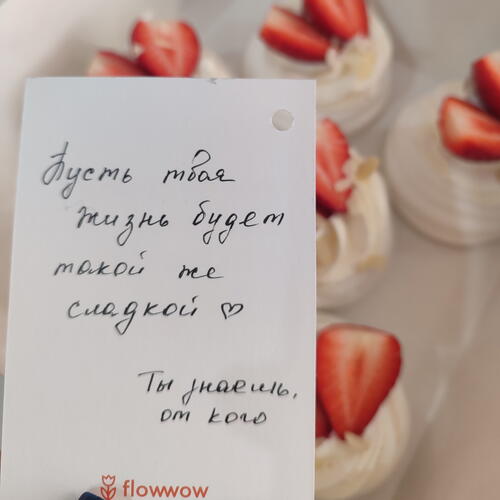 Пусть твоя
жизнь будет
такой же
сладкой ♡
Ты знаешь,
от кого
flowwow